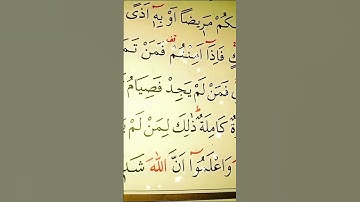 كُمْ مَرِيضًا اَوْ بِهٖٓ اَذًى
فَاِذَٓا اَمِنْتُمْ۠ فَمَنْ تَمَ
فَمَنْ لَمْ يَجِدْ فَصِيَامُ
ةٌ كَامِلَةٌؕ ذٰلِكَ لِمَنْ لَمْ يَ
وَاعْلَمُٓوا اَنَّ اللّٰهَ شَد